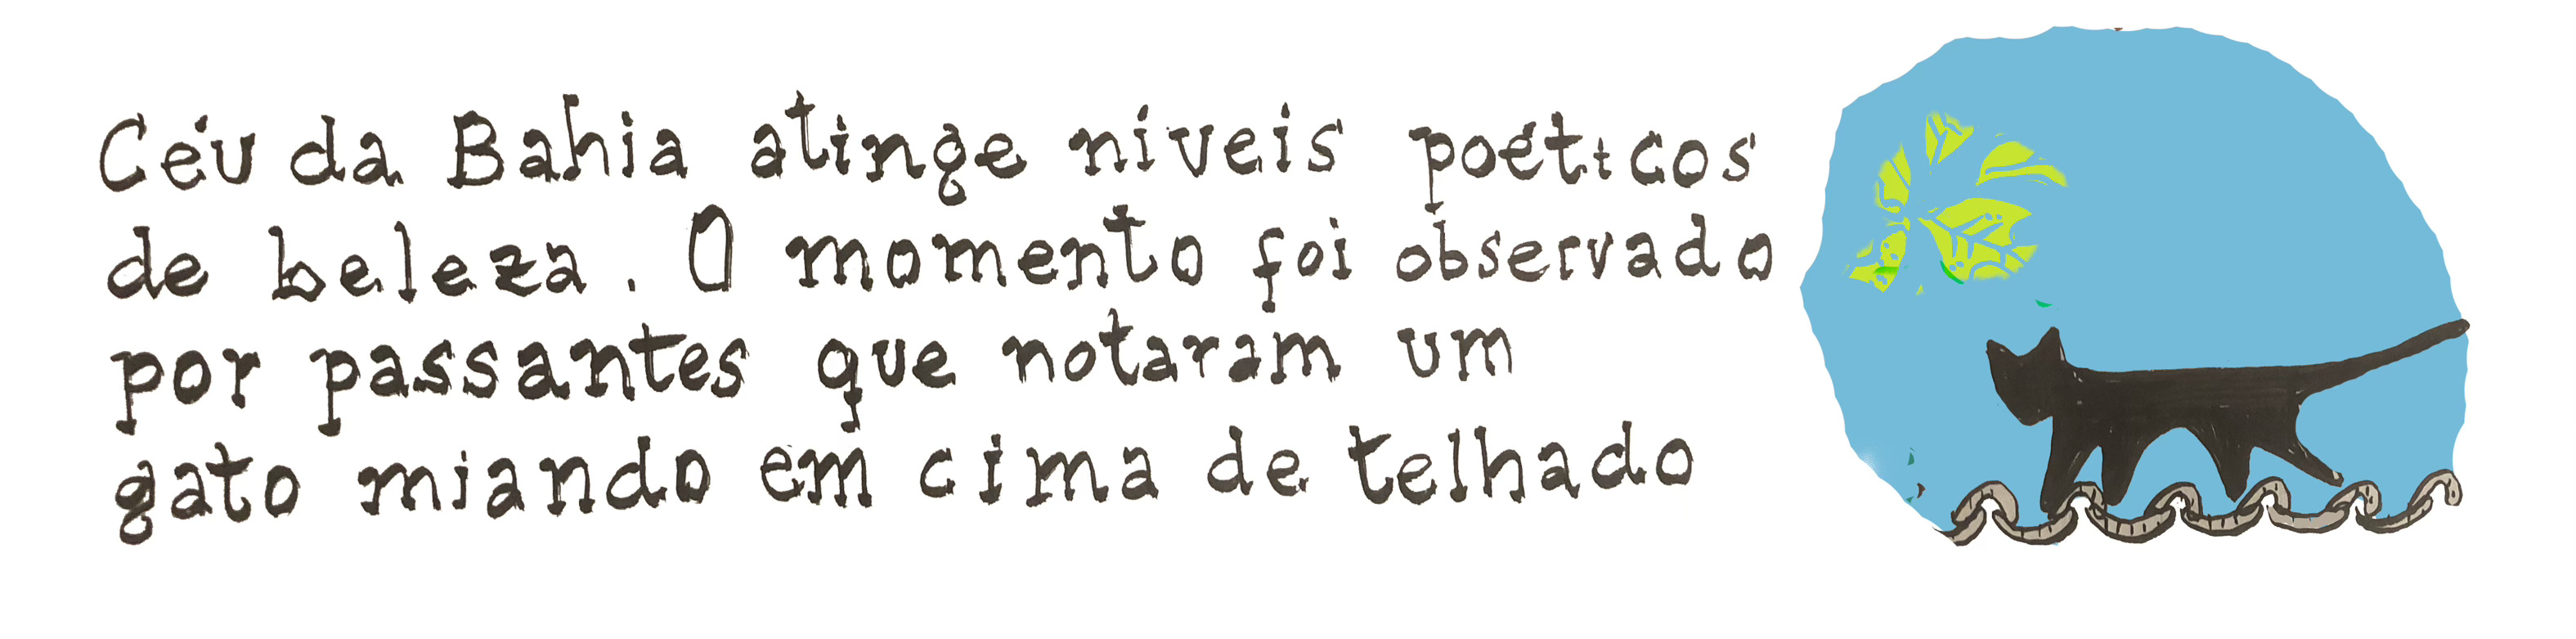 Céu da Bahia atinge níveis poéticos
de beleza. O momento foi observado
por passantes que notaram um
gato miando em cima de telhado